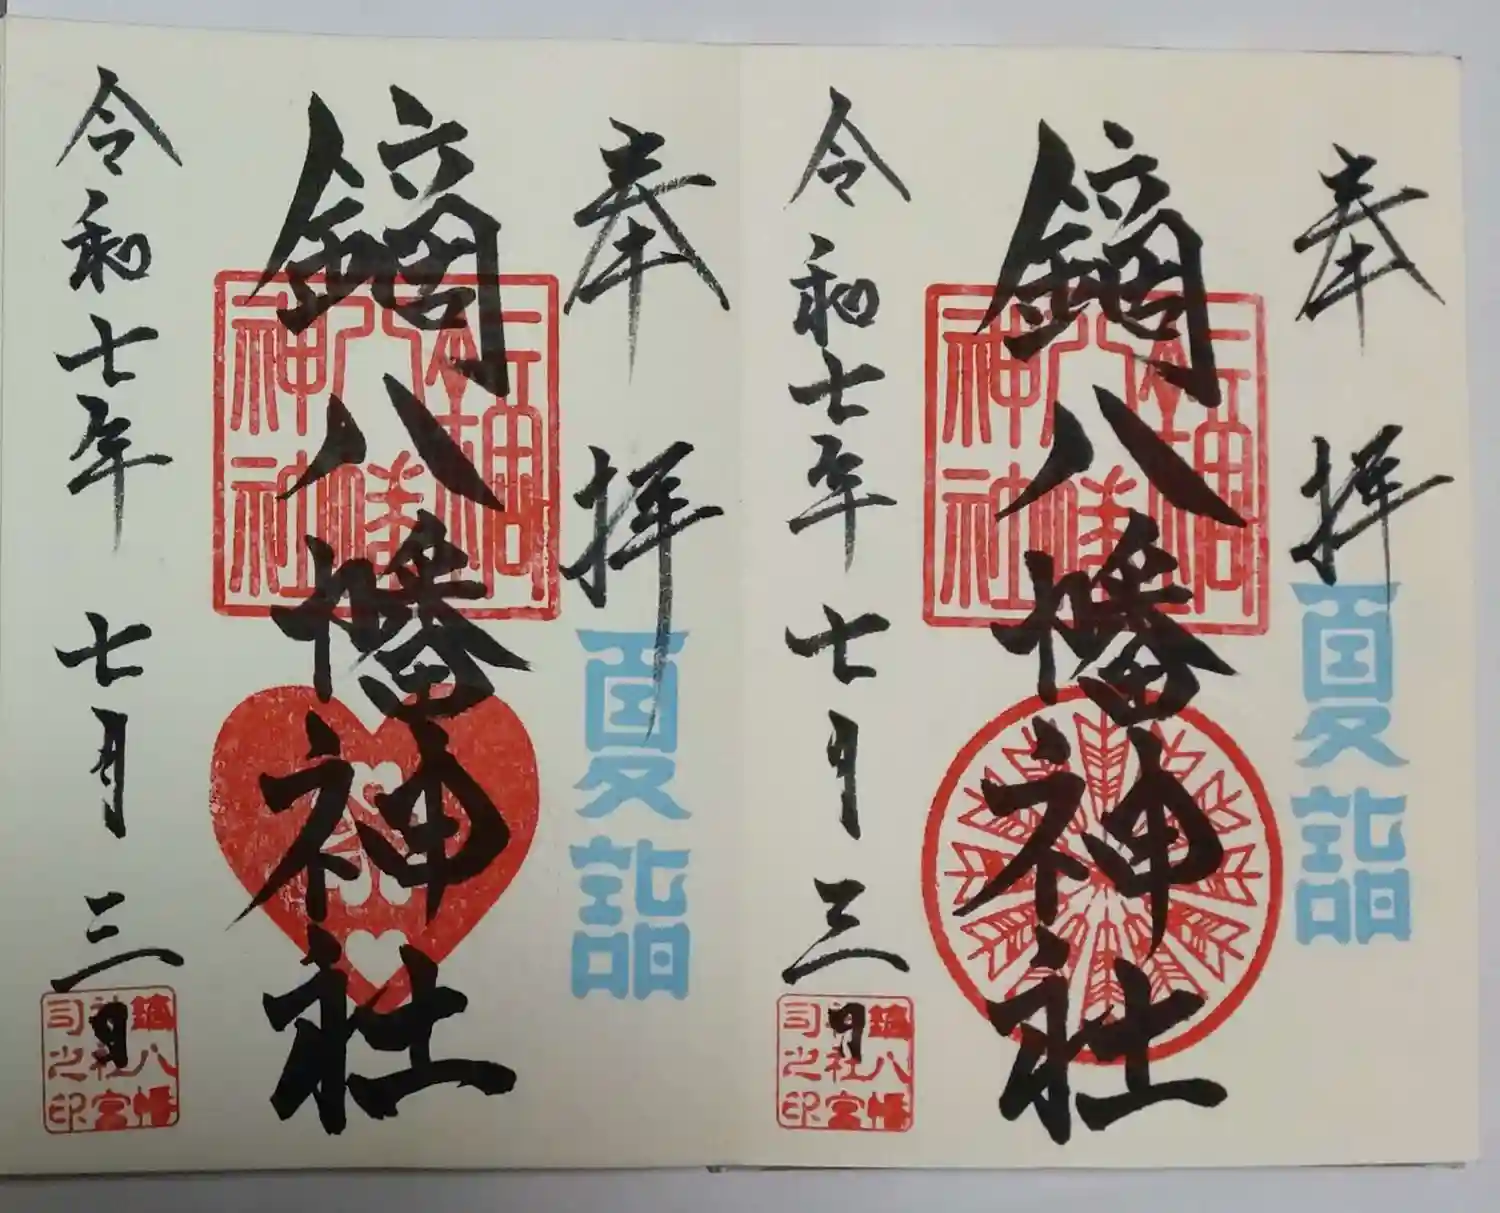 奉拝
夏詣
鏑八幡神社
令和七年 七月 三日
鏑八幡
神社宮
司之印
奉拝
夏詣
鏑八幡神社
八幡
神社
令和七年 七月 三日
鏑八幡
神社宮
司之印